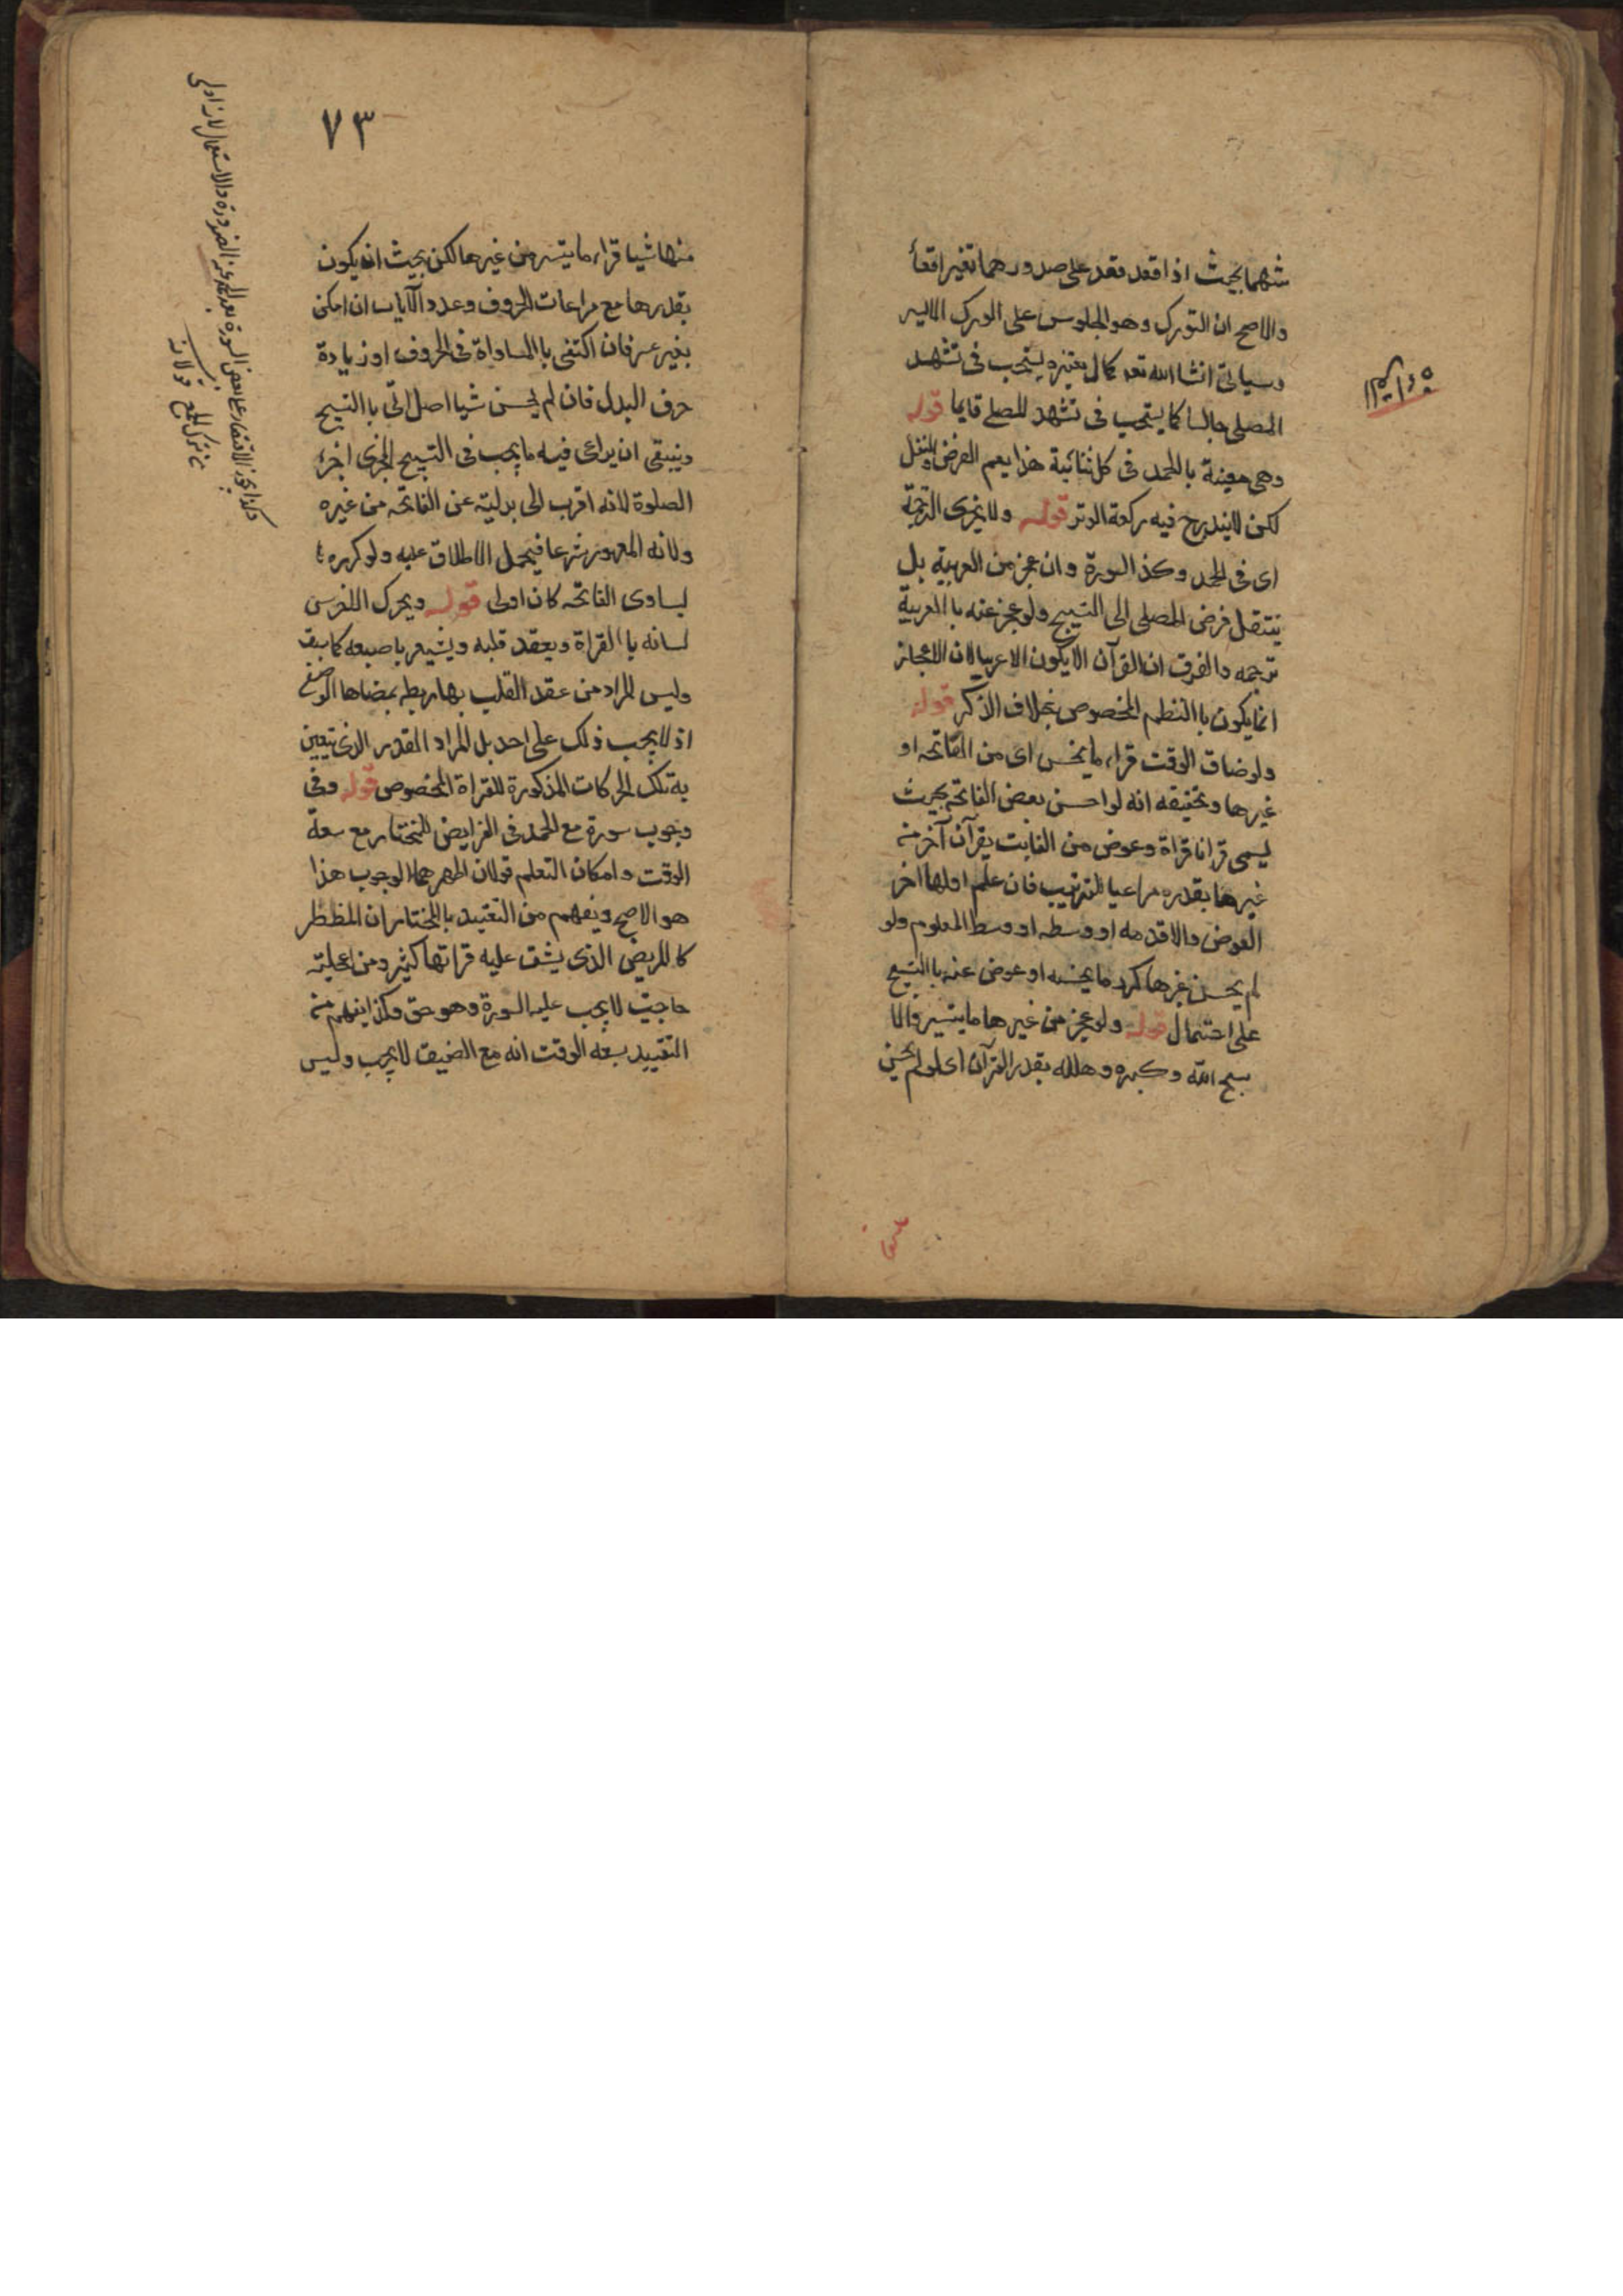 شهما بحيث اذا قعد قعد على صدورهما بغير اقعأ
والاصح ان التورك وهو الجلوس على الورك الايسر
وسياتى انشا الله تعد كمال يستحب فى تشهد
المصلى جالسا كما يستحب فى تشهد المصلے قايما قوله
وهى معينة باالحمد فى كل ثنائية هذا يعم الفرض والنفل
لكن لا يندرج فيه ركعة الوتر قوله ولا يجزى الترجمة
اى فى الحمد وكذ السورة وان عجز من العربية بل
ينتقل فرض المصلى الى التسبيح ولو عجز عنه باالعربية
ترجمه والفرق ان القرآن لا يكون الا عربيا لان الاعجاز
انما يكون باالنظم المخصوص بخلاف الذكر قوله
ولو ضاق الوقت قراء ما يحسن اى من الفاتحه او
غيرها وتحقيقه انه لو احسن بعض الفاتحة بحيث
يسمى قرانا قراه وعوض من الفايت بقرآن آخر من
غيرها بقدره مراعيا للترتيب فان علم اولها اخر
العوض والا قدمه او وسطه او وسط المعلوم ولو
لم يحسن غيرها كرر ما يحسنه او عوض عنه باالتسبيح
على احتمال قوله ولو عجز من غيرها ما يتيسر والا
سبح الله وكبره وهلله بقدر القرآن اى لو لم يحسن
٧٣
منها شيا قراء ما يتيسر من غيرها لكن بحيث انه يكون
بقدرها مع مراعات الحروف وعدد الآيات ان امكن
بغير عسر فان اكتفى باالمساواة فى الحروف او زيادة
حرف البدل فان لم يحسن شيا اصل اتى باالتسبيح
وينبقى ان يراعى فيه ما يجب فى التسبيح المجزى اخرء
الصلوة لانه اقرب الى بدليته عن الفاتحه من غيره
ولانه المعهود شرعا فيحمل الاطلاق عليه ولو كرره ث
ليساوى الفاتحه كان اولى قوله ويحرك الاخرس
لسانه باالقراة ويعقد قلبه ويشير باصبعه كما سبق
وليس المراد من عقد القلب بها ربطه بمضاها الوضعى
اذ لا يجب ذلك على احد بل المراد القدر الذى يتعين
به تلك الحركات المذكورة للقراة المخصوص قوله وفى
وجوب سورة مع الحمد فى الفرايض للمختار مع سعة
الوقت وامكان التعلم قولان اظهرهما الوجوب هذا
هو الاصح ويفهم من التقييد باالمختار ان المظطر
كاالمريض الذى يشق عليه قراتها كثير ومن اعجلته
حاجته لا يجب عليه السورة وهو حق وكذا يفهم منه
التقييد بسعه الوقت انه مع الضيق لا يجب وليس